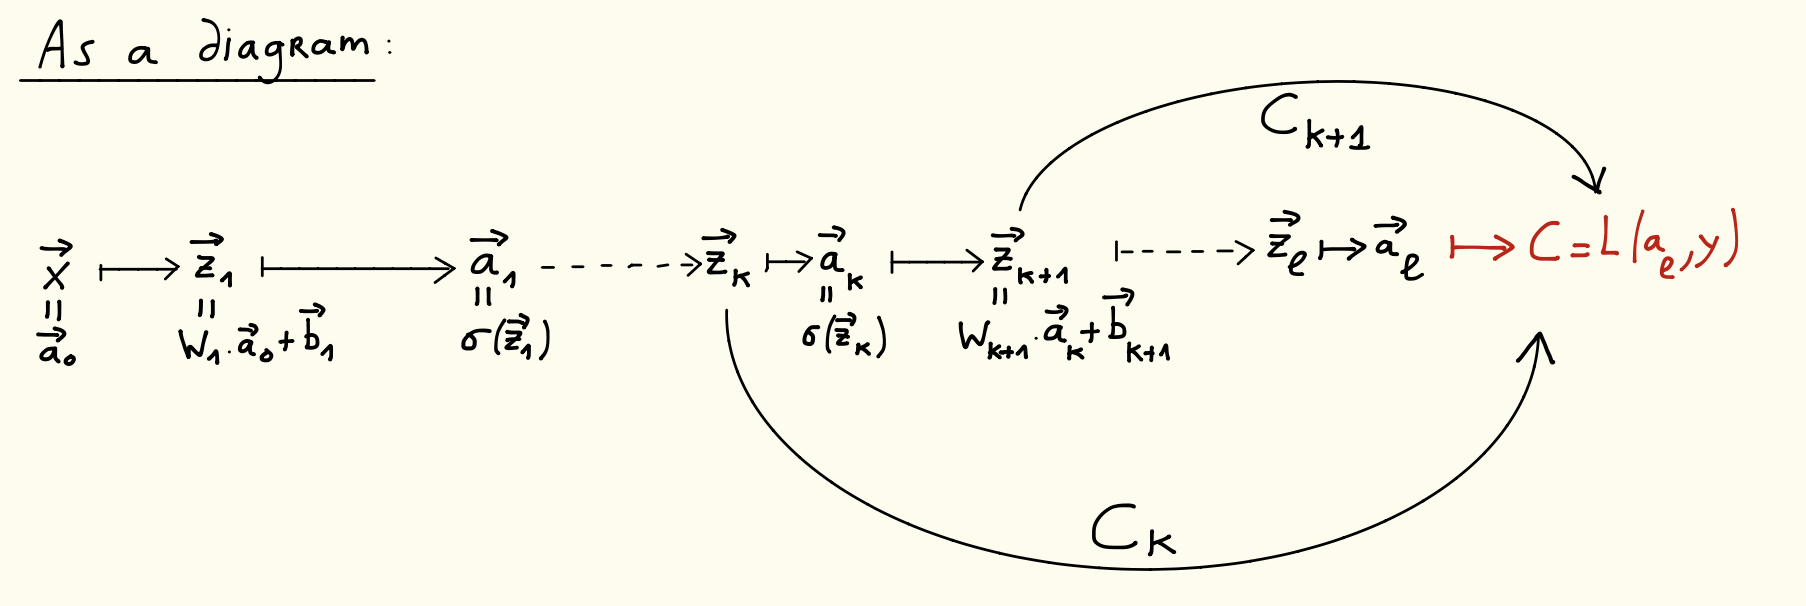 As a diagram:
C_{k+1}
\vec{x} ⟼ \vec{z}_1 ⟼ \vec{a}_1 ⇢ \vec{z}_k ⟼ \vec{a}_k ⟼ \vec{z}_{k+1} ⇢ \vec{z}_ℓ ⟼ \vec{a}_ℓ ⟼ C = L(a_ℓ, y)
|| || || || ||
\vec{a}_0 W_1 . \vec{a}_0 + \vec{b}_1 σ(\vec{z}_1) σ(\vec{z}_k) W_{k+1} . \vec{a}_k + \vec{b}_{k+1}
C_k